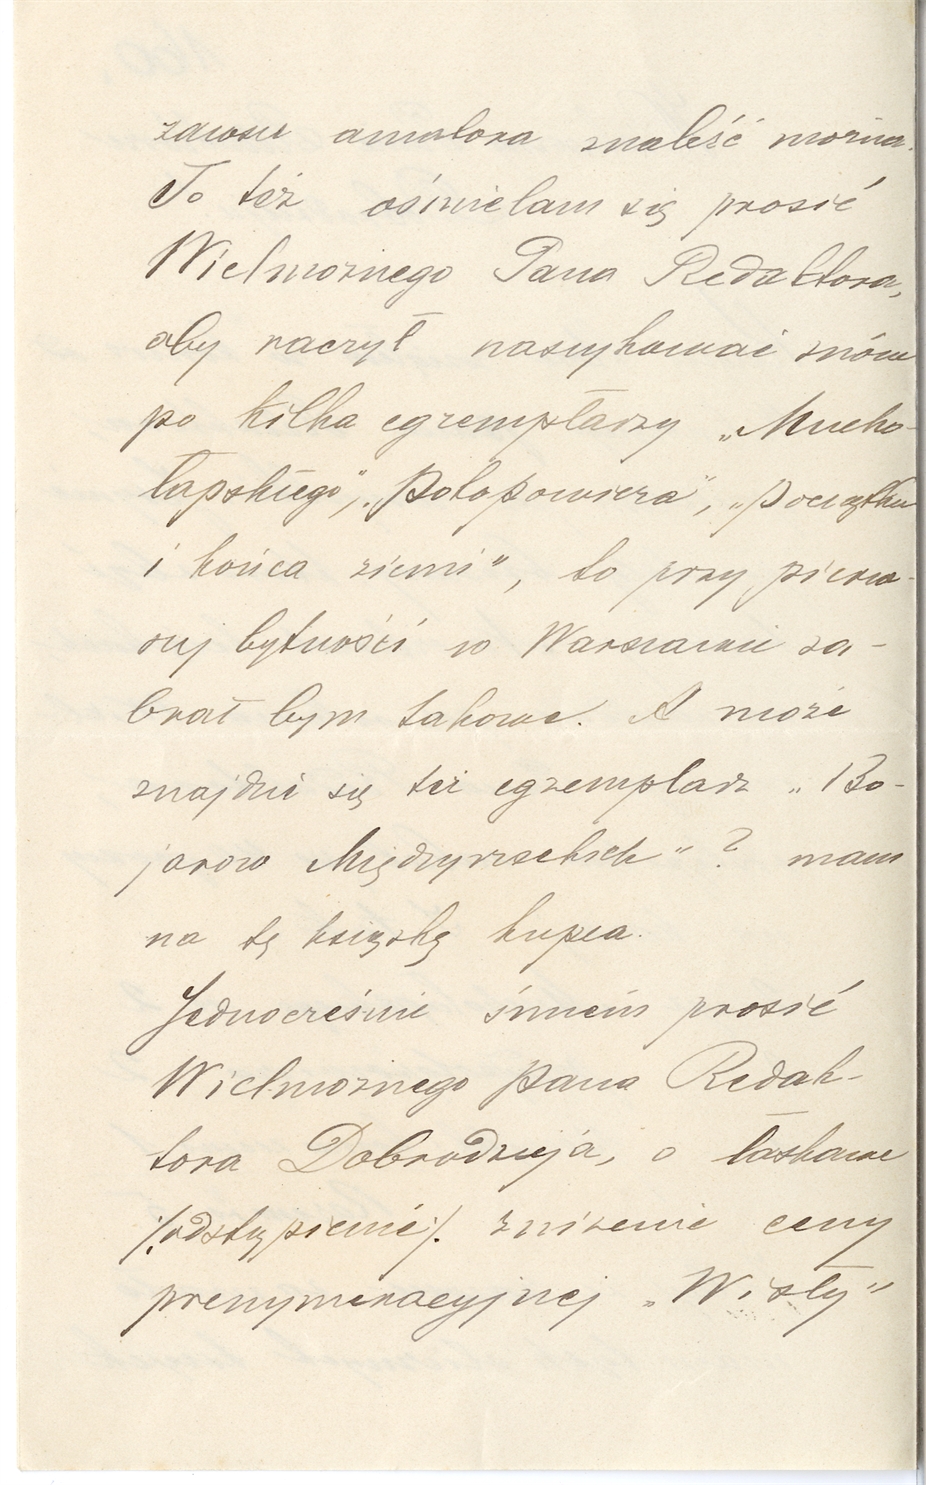 zawsze amatora znaleść można.
To też ośmielam się prosić
Wielmożnego Pana Redaktora,
aby raczył naszykować znów
po kilka egzemplarzy „Mucho-
łapskiego", „Potopowicza", „Początku
i końca ziemi", to przy pierw-
szej bytności w Warszawie za-
brał bym takowe. A może
znajdzie się też egzemplarz „Bo-
jarów Międzyrzeckich" ? mam
na tę książkę kupca.
Jednocześnie śmiem prosić
Wielmożnego Pana Redak-
tora Dobrodzieja, o łaskawe
/:odstąpienie:/ zniżenie ceny
prenumeracyjnej „Wisły"